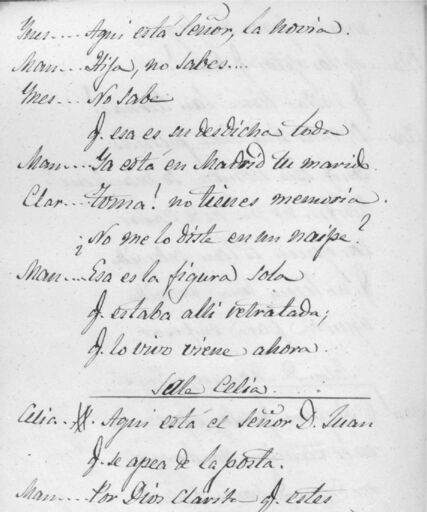 Ynes... Aqui está Señor, la novia.
Man.... Hija, no sabes...
Ynes... No sabe
q. esa es su desdicha toda
Man.... Ya está en Madrid tu marid.
Clar.... toma! no tienes memoria.
¿No me lo diste en un naipe?
Man.... Esa es la figura sola
q. estaba alli retratada;
q. lo vivo viene ahora
Sale Celia.
Celia. Aqui está el Señor D. Juan
q. se apea de la posta.
Man... Por Dios Clarita q. estes